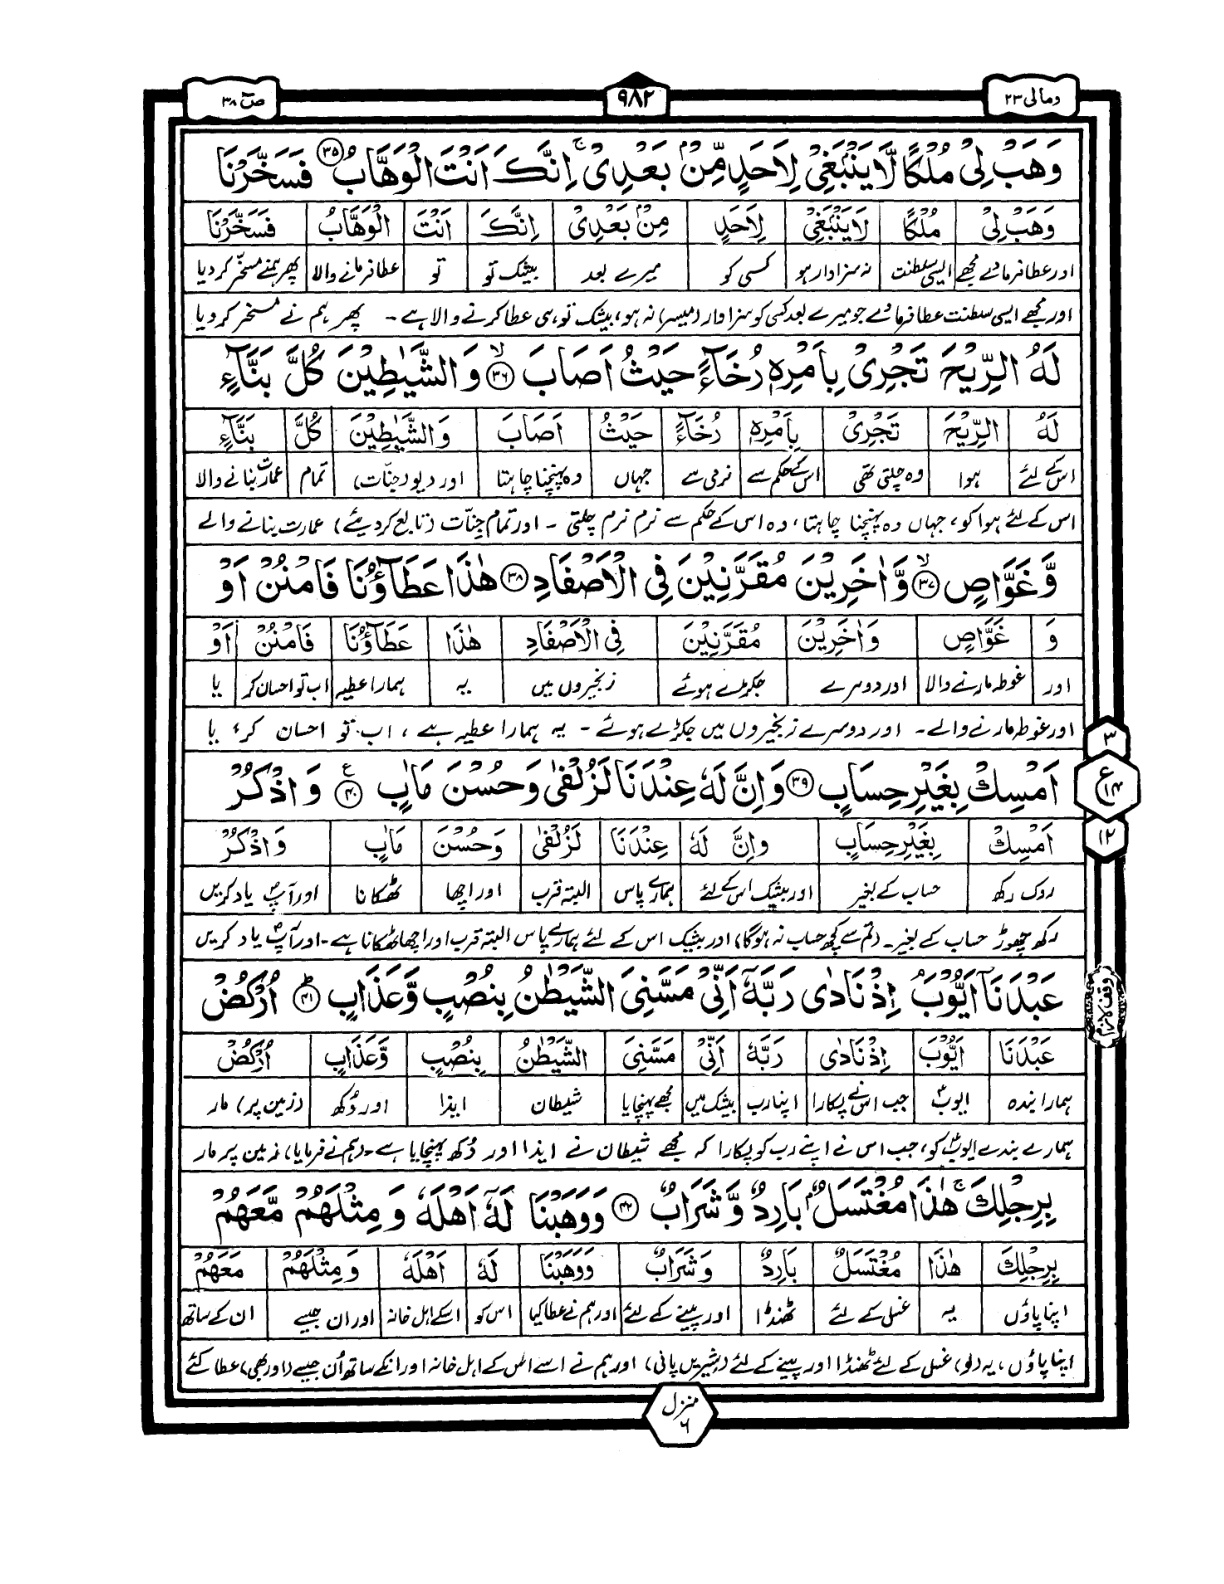 ومالی ۲۳
۹۸۲
صٓ ۳۸
وَهَبْ لِیْ مُلْكًا لَّا یَنْۢبَغِیْ لِاَحَدٍ مِّنْۢ بَعْدِیْ ۚ اِنَّكَ اَنْتَ الْوَهَّابُ ۳۵ فَسَخَّرْنَا
وَهَبْ لِیْ مُلْكًا لَا یَنْۢبَغِیْ لِاَحَدٍ مِنْۢ بَعْدِیْ اِنَّكَ اَنْتَ الْوَهَّابُ فَسَخَّرْنَا
اور عطا فرمادے مجھے ایسی سلطنت نہ سزاوار ہو کسی کو میرے بعد بیشک تو تو عطا فرمانے والا پھر ہم نے مسخر کر دیا
اور مجھے ایسی سلطنت عطا فرمادے جو میرے بعد کسی کو سزاوار (میسر) نہ ہو، بیشک تو ہی عطا کرنے والا ہے۔ پھر ہم نے مسخر کر دیا
لَهُ الرِّیْحَ تَجْرِیْ بِاَمْرِهٖ رُخَآءً حَیْثُ اَصَابَ ۙ ۳۶ وَالشَّیٰطِیْنَ كُلَّ بَنَّآءٍ
لَهُ الرِّیْحَ تَجْرِیْ بِاَمْرِهٖ رُخَآءً حَیْثُ اَصَابَ وَالشَّیٰطِیْنَ كُلَّ بَنَّآءٍ
اس کے لئے ہوا وہ چلتی تھی اس کے حکم سے نرمی سے جہاں وہ پہنچنا چاہتا اور دیو (جنات) تمام عمارت بنانے والا
اس کے لئے ہوا کو، جہاں وہ پہنچنا چاہتا، وہ اس کے حکم سے نرم نرم چلتی۔ اور تمام جنّات (تابع کر دیئے) عمارت بنانے والے
وَّغَوَّاصٍ ۙ ۳۷ وَّاٰخَرِیْنَ مُقَرَّنِیْنَ فِی الْاَصْفَادِ ۳۸ هٰذَا عَطَآؤُنَا فَامْنُنْ اَوْ
وَ غَوَّاصٍ وَاٰخَرِیْنَ مُقَرَّنِیْنَ فِی الْاَصْفَادِ هٰذَا عَطَآؤُنَا فَامْنُنْ اَوْ
اور غوطہ مارنے والا اور دوسرے جکڑے ہوئے زنجیروں میں یہ ہمارا عطیہ اب تو احسان کر یا
اور غوطہ مارنے والے۔ اور دوسرے زنجیروں میں جکڑے ہوئے۔ یہ ہمارا عطیہ ہے، اب تو احسان کر، یا
اَمْسِكْ بِغَیْرِ حِسَابٍ ۳۹ وَاِنَّ لَهٗ عِنْدَنَا لَزُلْفٰی وَحُسْنَ مَاٰبٍ ۴۰ ع وَاذْكُرْ
اَمْسِكْ بِغَیْرِ حِسَابٍ وَاِنَّ لَهٗ عِنْدَنَا لَزُلْفٰی وَحُسْنَ مَاٰبٍ وَاذْكُرْ
روک رکھ حساب کے بغیر اور بیشک اس کے لئے ہمارے پاس البتہ قرب اور اچھا ٹھکانا اور آپؐ یاد کریں
رکھ چھوڑ حساب کے بغیر۔ (تم سے کچھ حساب نہ ہوگا) اور بیشک اس کے لئے ہمارے پاس البتہ قرب اور اچھا ٹھکانا ہے۔ اور آپؐ یاد کریں
عَبْدَنَاۤ اَیُّوْبَ اِذْ نَادٰی رَبَّهٗۤ اَنِّیْ مَسَّنِیَ الشَّیْطٰنُ بِنُصْبٍ وَّعَذَابٍ ؕ ۴۱ اُرْكُضْ
عَبْدَنَا اَیُّوْبَ اِذْ نَادٰی رَبَّهٗ اَنِّیْ مَسَّنِیَ الشَّیْطٰنُ بِنُصْبٍ وَّعَذَابٍ اُرْكُضْ
ہمارا بندہ ایوبؑ جب اس نے پکارا اپنا رب بیشک میں مجھے پہنچایا شیطان ایذا اور دُکھ (زمین پر) مار
ہمارے بندے ایوبؑ کو، جب اس نے اپنے رب کو پکارا کہ مجھے شیطان نے ایذا اور دُکھ پہنچایا ہے۔ (ہم نے فرمایا) زمین پر مار
بِرِجْلِكَ ۚ هٰذَا مُغْتَسَلٌۢ بَارِدٌ وَّشَرَابٌ ۴۲ وَوَهَبْنَا لَهٗۤ اَهْلَهٗ وَمِثْلَهُمْ مَّعَهُمْ
بِرِجْلِكَ هٰذَا مُغْتَسَلٌ بَارِدٌ وَشَرَابٌ وَوَهَبْنَا لَهٗ اَهْلَهٗ وَمِثْلَهُمْ مَعَهُمْ
اپنا پاؤں یہ غسل کے لئے ٹھنڈا اور پینے کے لئے اور ہم نے عطا کیا اس کو اس کے اہل خانہ اور ان جیسے ان کے ساتھ
اپنا پاؤں، یہ (لو) غسل کے لئے ٹھنڈا اور پینے کے لئے (شیریں پانی)، اور ہم نے اسے اس کے اہل خانہ اور انکے ساتھ اُن جیسے (اور بھی) عطا کئے
۳
ع ۱۴
۱۲
وقف لازم
منزل ۶